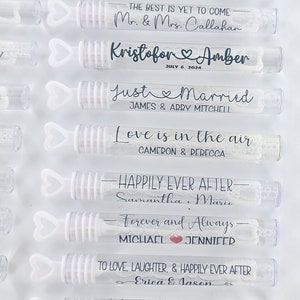 THE BEST IS YET TO COME
Mr. & Mrs. Callahan
Kristofor Amber
JULY 6, 2024
Just Married
JAMES & ABBY MITCHELL
Love is in the air
CAMERON & REBECCA
HAPPILY EVER AFTER
Samantha & Marie
Forever and Always
MICHAEL ❤ JENNIFER
TO LOVE, LAUGHTER, & HAPPILY EVER AFTER
Erica & Jason